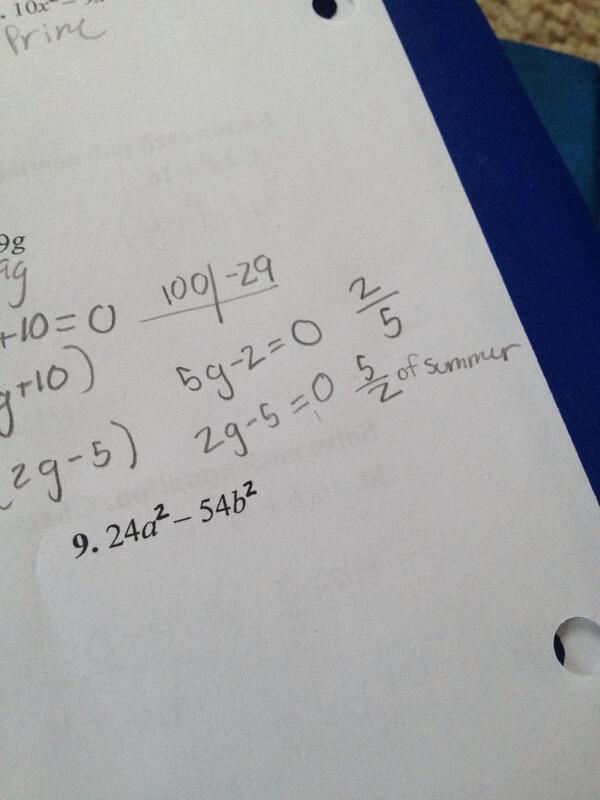 . 10x² –
Prime
9g
9g
+10=0 100 | -29
g+10) 5g-2=0 2/5
(2g-5) 2g-5=0 5/2 of summer
9. 24a² – 54b²